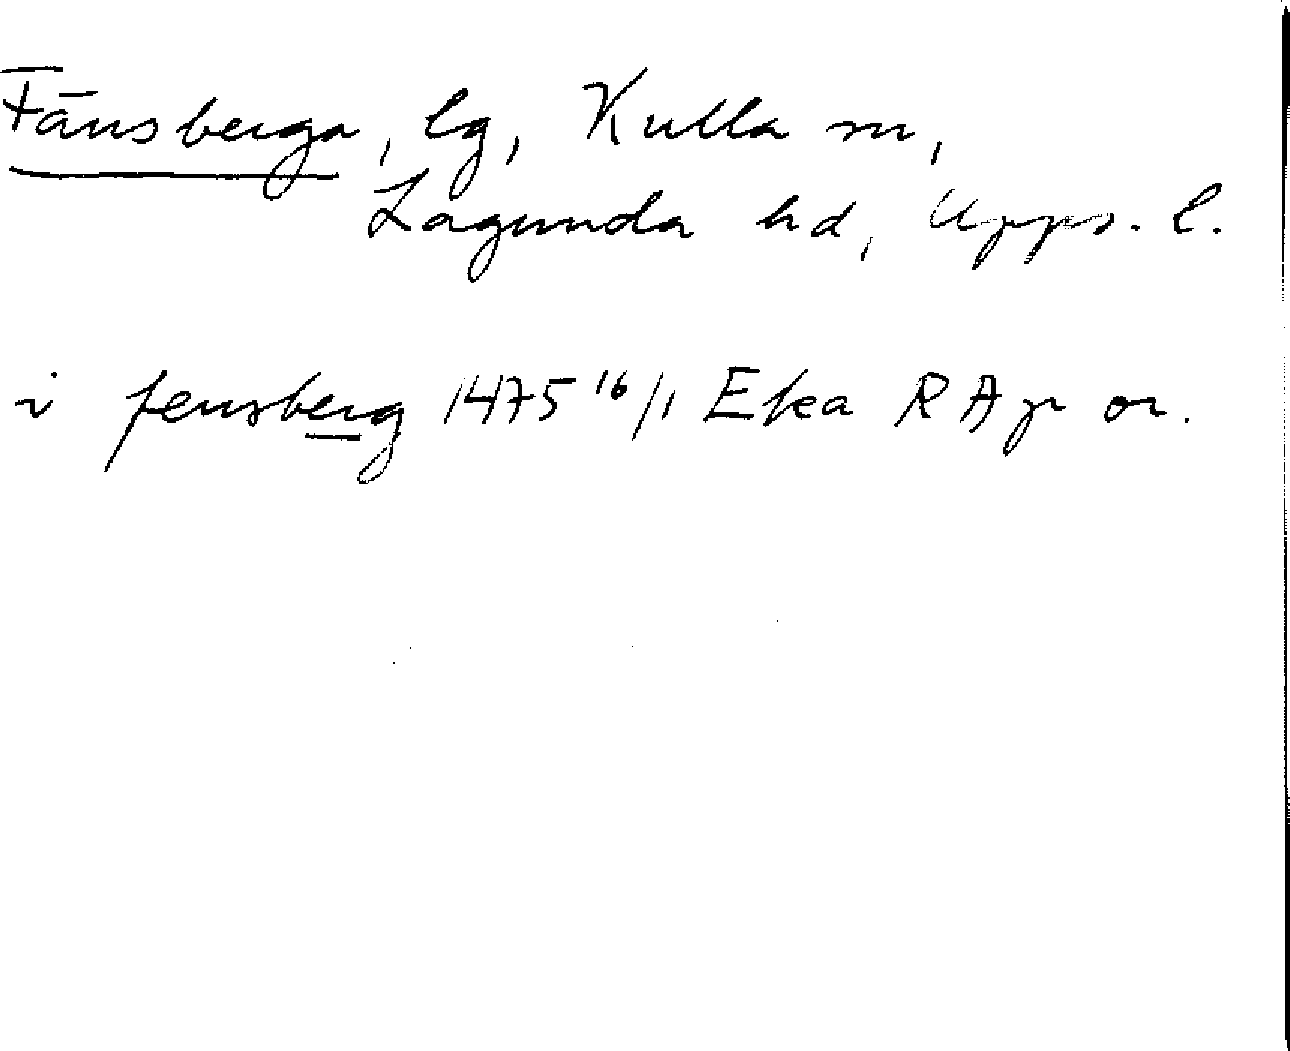 Fänsberga, lg, Kulla sn,
Lagunda hd, Upps. l.
i fensberg 1475 16/1 Eka RAp or.